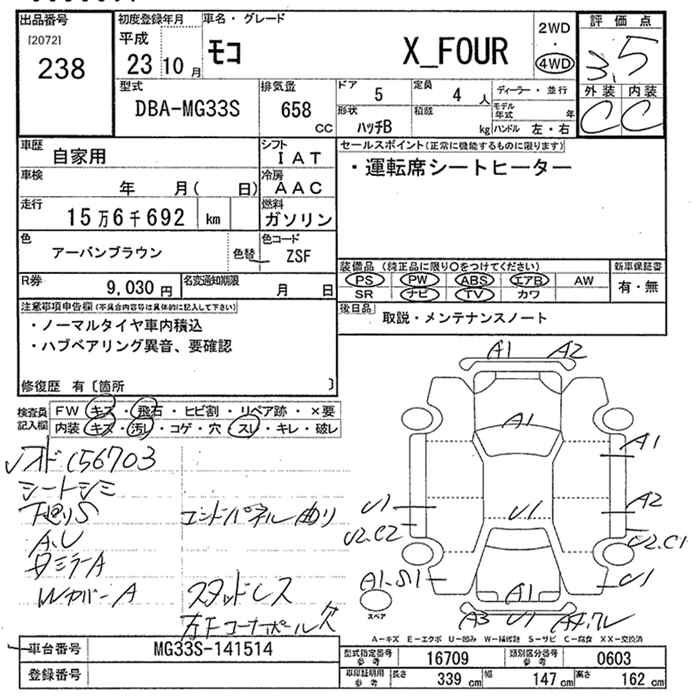 出品番号
[2072]
238
初度登録年月
平成
23 10 月
車名・グレード
モコ X_FOUR
2WD
4WD
評価点
3.5
外装 内装
C C
型式
DBA-MG33S
排気量
658 cc
ドア 5
定員 4 人
形状 ハッチB
積載 kg
ディーラー・並行
モデル年式 年
ハンドル 左・右
車歴 自家用
シフト IAT
車検 年 月( 日)
冷房 AAC
走行 15万6千692 km
燃料 ガソリン
色 アーバンブラウン
色替
色コード ZSF
R券 9,030 円
名変通知期限 月 日
セールスポイント(正常に機能するものに限ります)
・運転席シートヒーター
装備品 (純正品に限り○をつけてください)
PS PW ABS エアB AW
SR ナビ TV カワ
新車保証書
有・無
後日品 取説・メンテナンスノート
注意事項申告欄(不具合内容等は具体的に記入して下さい)
・ノーマルタイヤ車内積込
・ハブベアリング異音、要確認
修復歴 有〔箇所 〕
検査員記入欄
FW キズ・飛石・ヒビ割・リペア跡・×要
内装 キズ・汚レ・コゲ・穴・スレ・キレ・破レ
156703
シートシミ
下回りS
A.U
ミラーA
WカバーA
エンドパネル曲り
スタッドレス
左Fコーナーポール欠
A1 A2
A1
A1
U1 A2
U1
U2.C2 U2.C1
A1.S1 U1
A1
スペア
A3 U1
A-キズ E-エクボ U-凹み W-補修跡 S-サビ C-腐食 XX-交換済
車台番号 MG33S-141514
登録番号
型式指定番号 参考 16709
類別区分番号 参考 0603
車庫証明用 参考 長さ 339 cm 幅 147 cm 高さ 162 cm